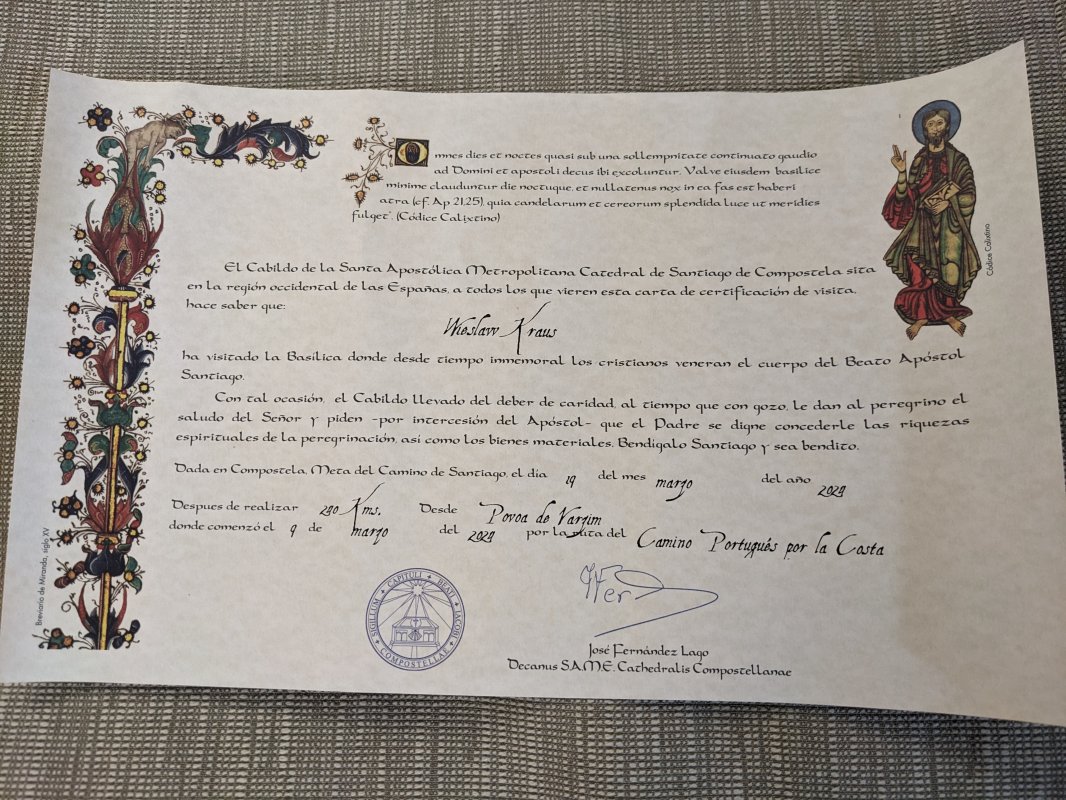 Omnes dies et noctes quasi sub una sollempnitate continuato gaudio
ad Domini et apostoli decus ibi excoluntur. Valve eiusdem basilice
minime clauduntur die noctuque, et nullatenus nox in ea fas est haberi
atra (cf. Ap 21,25), quia candelarum et cereorum splendida luce ut meridies
fulget". (Códice Calixtino)
Códice Calixtino
El Cabildo de la Santa Apostólica Metropolitana Catedral de Santiago de Compostela sita
en la región occidental de las Españas, a todos los que vieren esta carta de certificación de visita,
hace saber que:
Wieslaw Kraus
ha visitado la Basílica donde desde tiempo inmemoral los cristianos veneran el cuerpo del Beato Apóstol
Santiago.
Con tal ocasión, el Cabildo llevado del deber de caridad, al tiempo que con gozo, le dan al peregrino el
saludo del Señor y piden -por intercesión del Apóstol- que el Padre se digne concederle las riquezas
espirituales de la peregrinación, así como los bienes materiales. Bendígalo Santiago y sea bendito.
Dada en Compostela, Meta del Camino de Santiago, el día 19 del mes marzo del año 2024
Despues de realizar 240 Kms. Desde Povoa de Varzim
donde comenzó el 9 de marzo del 2024 por la ruta del Camino Portugués por la Costa
Breviario de Miranda, siglo XV
SIGILLUM CAPITULI BEATI JACOBI COMPOSTELLAE
José Fernández Lago
Decanus S.A.M.E. Cathedralis Compostellanae